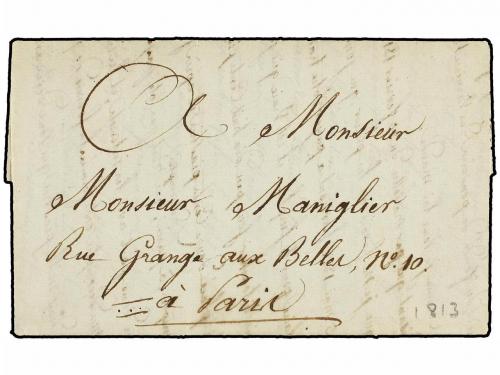 A Monsieur
Monsieur Maniglier
Rue Grange aux Belles, No. 10.
à Paris
1813